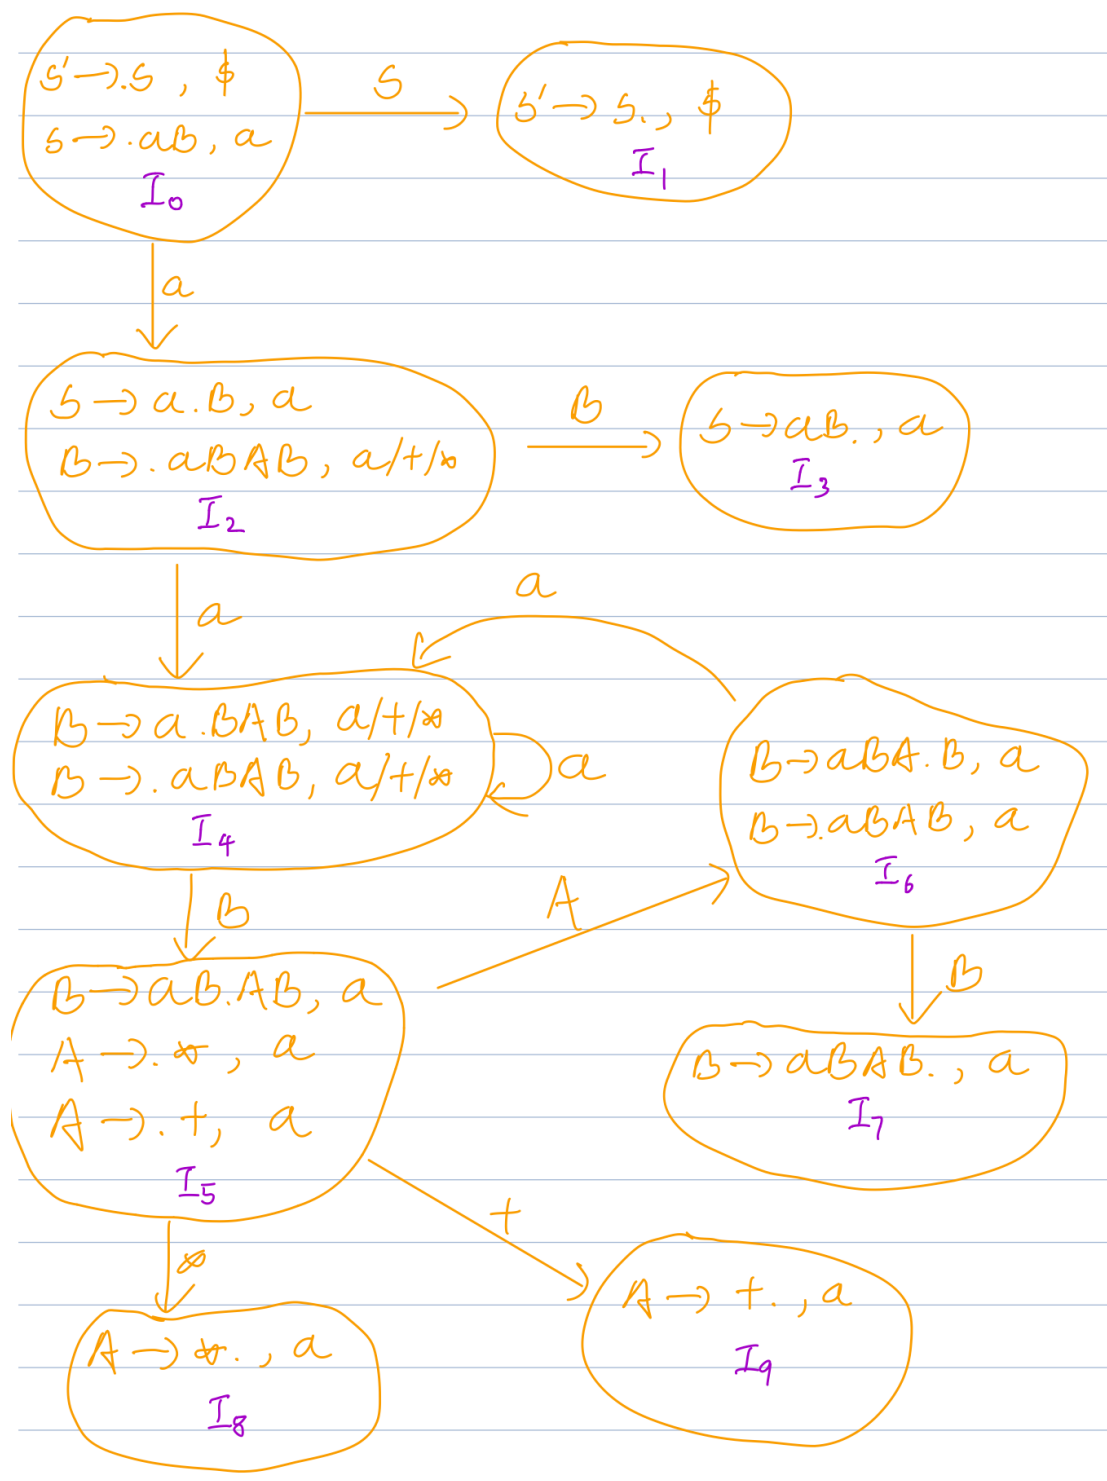 S' → .S , $
S → .aB , a
I₀
S
S' → S. , $
I₁
a
S → a.B, a
B → .aBAB, a/+/*
I₂
B
S → aB. , a
I₃
a
a
B → a.BAB, a/+/*
B → .aBAB, a/+/*
I₄
a
B → aBA.B, a
B → .aBAB, a
I₆
B
A
B
B → aB.AB, a
A → .*, a
A → .+, a
I₅
B → aBAB. , a
I₇
+
*
A → *. , a
I₈
A → +. , a
I₉